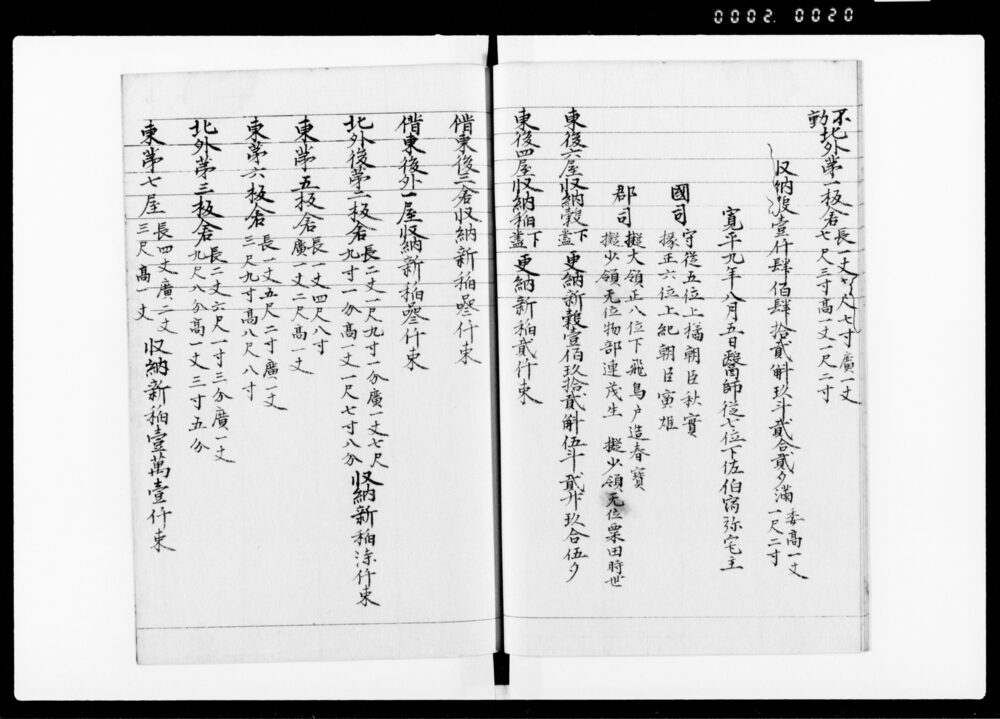 0002.0020
不動北外第一板倉長一丈六尺七寸廣一丈七尺三寸高一丈一尺二寸
収納穀壹仟肆佰肆拾貳斛玖斗貳合貳夕滿委高一丈一尺二寸
寛平九年八月五日醫師從七位下佐伯宿祢宅主
國司守從五位上橘朝臣秋實
掾正六位上紀朝臣寅雄
郡司擬大領正八位下飛鳥戸造春寶
擬少領无位物部連茂生 擬少領无位粟田時世
東後六屋収納穀下盡更納新穀壹佰玖拾貳斛伍斗貳升玖合伍夕
東後四屋収納稲下盡更納新稲貳仟束
借東後三倉収納新稲叄仟束
借東後外一屋収納新稲叄仟束
北外後第二板倉長二丈一尺九寸一分廣一丈七尺九寸一分高一丈一尺七寸八分収納新稲漆仟束
東第五板倉長一丈四尺八寸廣一丈二尺高一丈
東第六板倉長一丈五尺二寸廣一丈三尺九寸高八尺八寸
北外第三板倉長二丈六尺一寸三分廣一丈九尺八分高一丈三寸五分
東第七屋長四丈廣二丈三尺高一丈収納新稲壹萬壹仟束